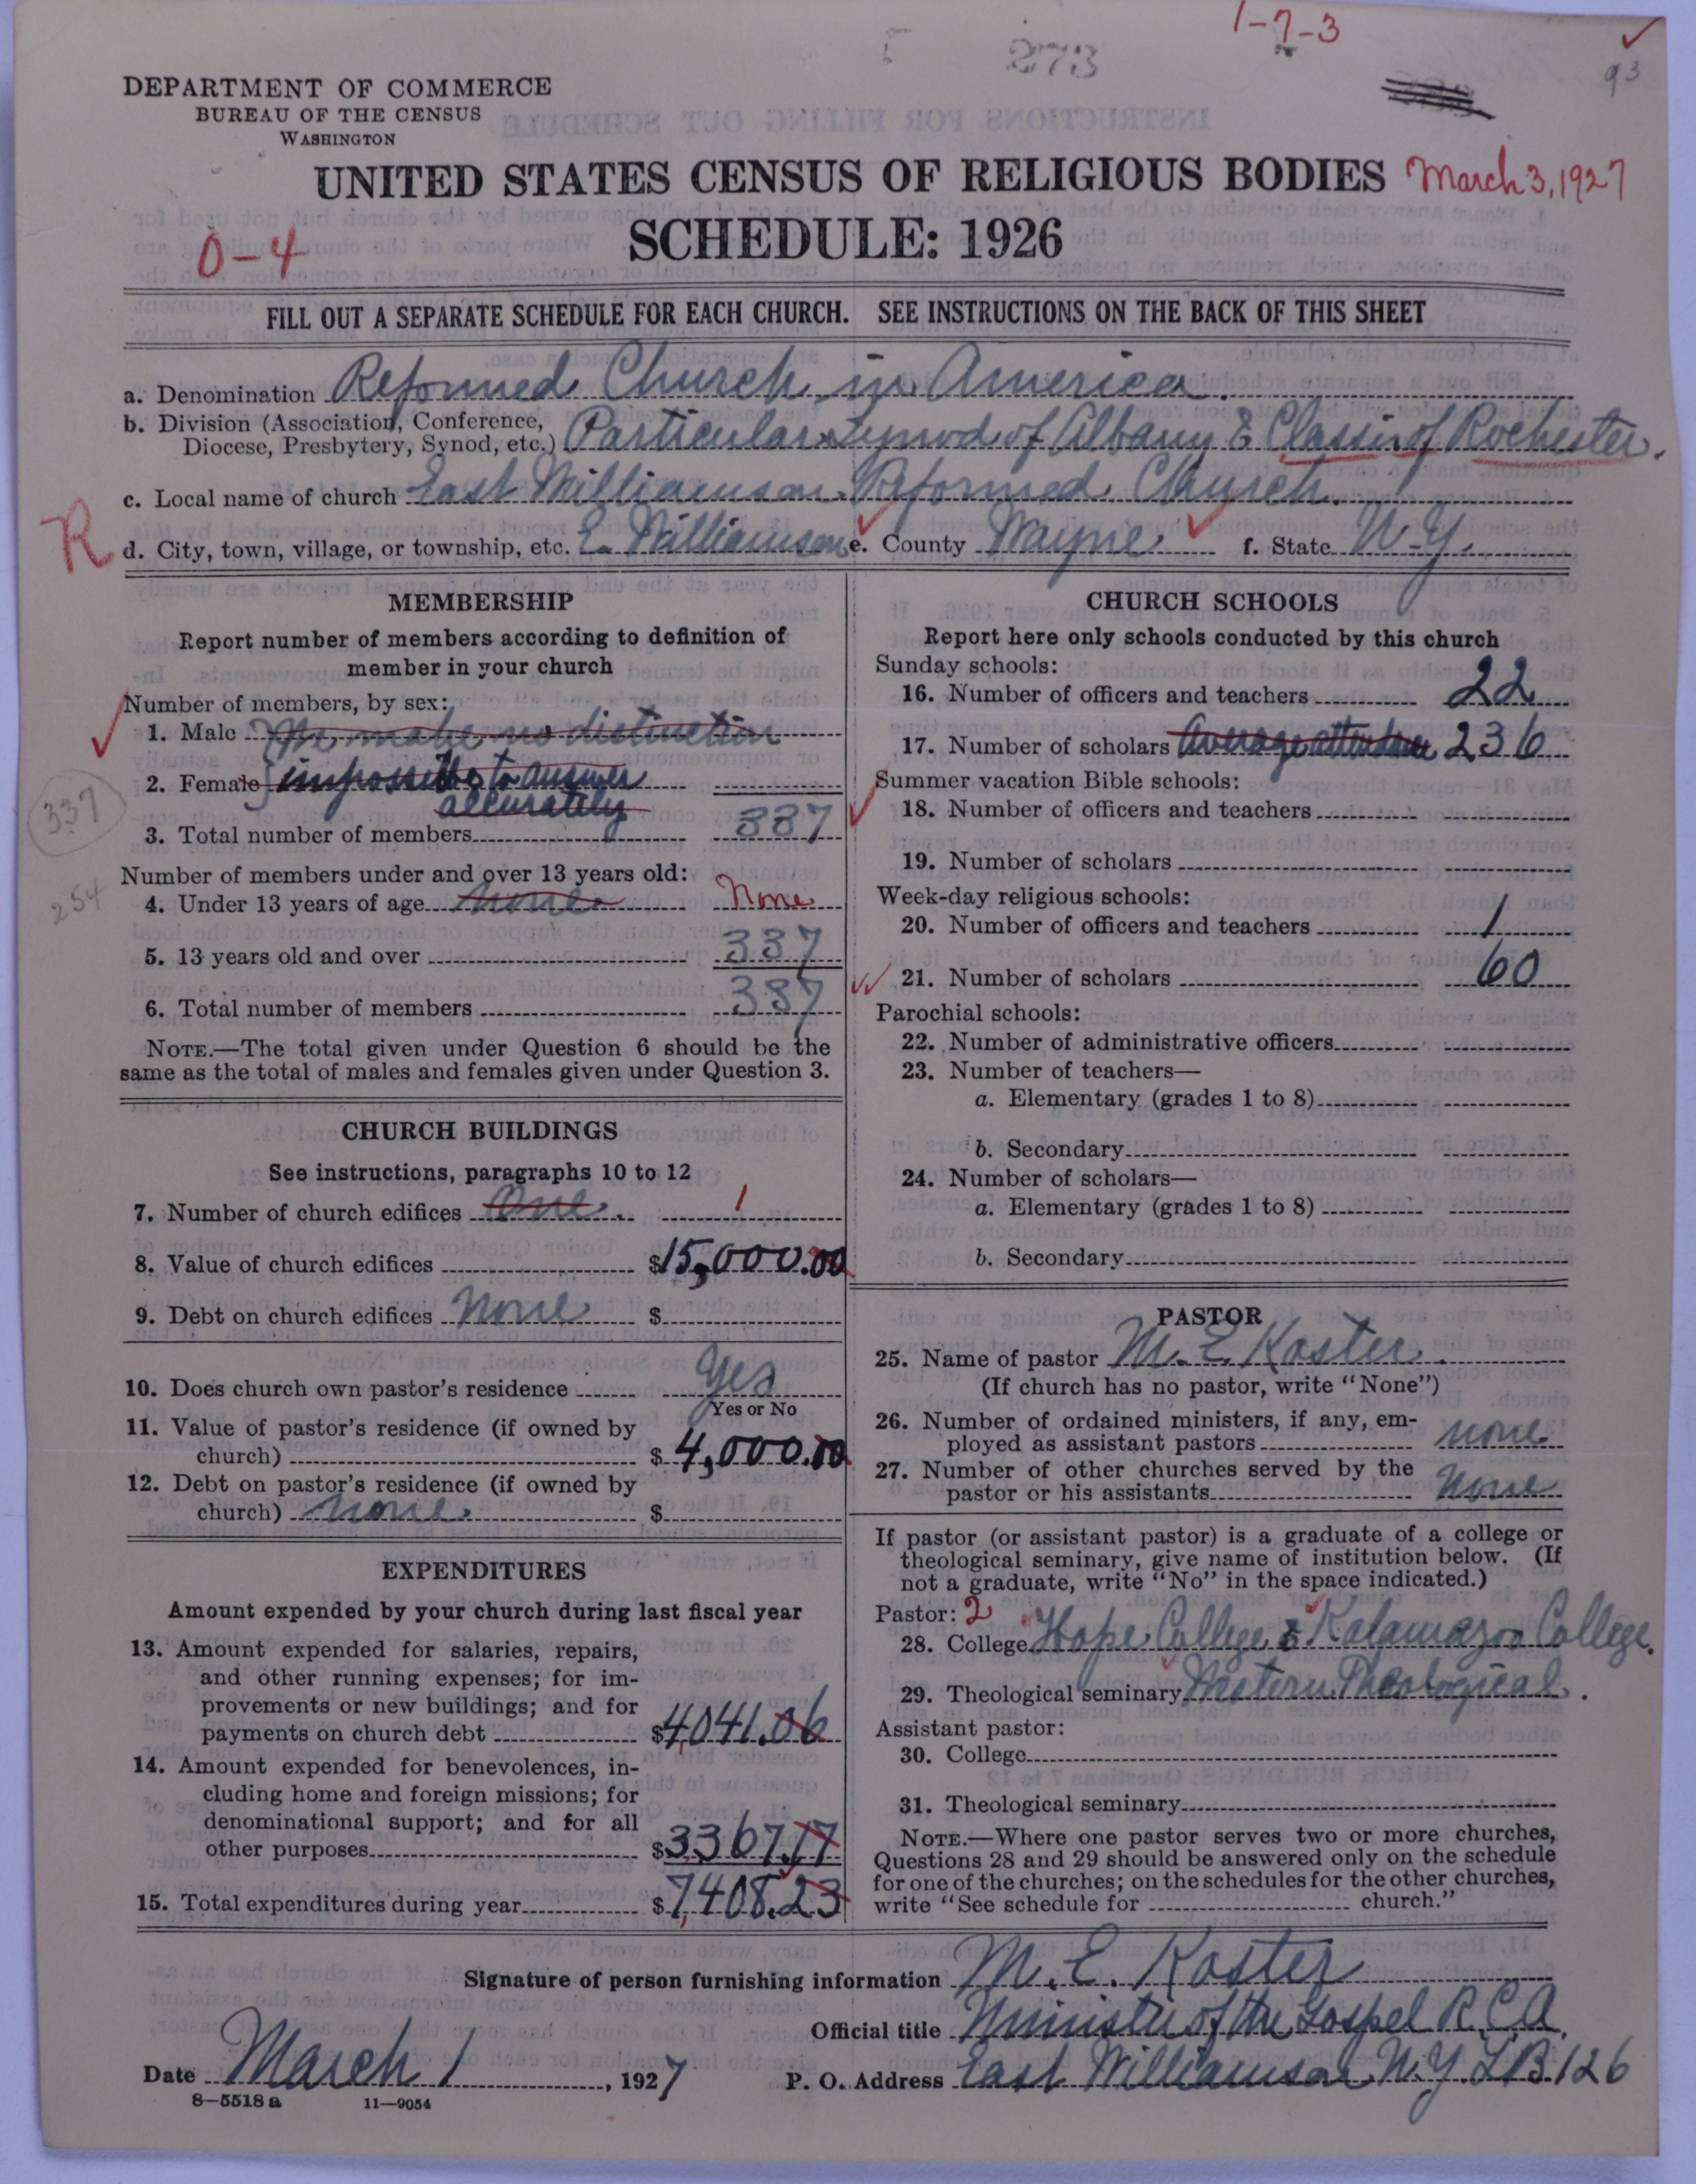 1-7-3
273
93
DEPARTMENT OF COMMERCE
BUREAU OF THE CENSUS
WASHINGTON
UNITED STATES CENSUS OF RELIGIOUS BODIES March 3, 1927
SCHEDULE: 1926
0-4
FILL OUT A SEPARATE SCHEDULE FOR EACH CHURCH. SEE INSTRUCTIONS ON THE BACK OF THIS SHEET
a. Denomination Reformed Church in America.
b. Division (Association, Conference,
Diocese, Presbytery, Synod, etc.) Particular Synod of Albany & Classis of Rochester.
c. Local name of church East Williamson Reformed Church.
R
d. City, town, village, or township, etc. E. Williamson e. County Wayne f. State N.Y.
MEMBERSHIP
Report number of members according to definition of
member in your church
Number of members, by sex:
1. Male We make no distinction
2. Female impossible to answer
accurately
337
3. Total number of members 337
Number of members under and over 13 years old:
254
4. Under 13 years of age none None
5. 13 years old and over 337
6. Total number of members 337
NOTE.—The total given under Question 6 should be the
same as the total of males and females given under Question 3.
CHURCH BUILDINGS
See instructions, paragraphs 10 to 12
7. Number of church edifices One. 1
8. Value of church edifices $15,000.00
9. Debt on church edifices None $
10. Does church own pastor's residence Yes
Yes or No
11. Value of pastor's residence (if owned by
church) $4,000.00
12. Debt on pastor's residence (if owned by
church) none. $
EXPENDITURES
Amount expended by your church during last fiscal year
13. Amount expended for salaries, repairs,
and other running expenses; for im-
provements or new buildings; and for
payments on church debt $4,041.06
14. Amount expended for benevolences, in-
cluding home and foreign missions; for
denominational support; and for all
other purposes $3367.17
15. Total expenditures during year $7,408.23
CHURCH SCHOOLS
Report here only schools conducted by this church
Sunday schools:
16. Number of officers and teachers 22
17. Number of scholars Average attendance 236
Summer vacation Bible schools:
18. Number of officers and teachers
19. Number of scholars
Week-day religious schools:
20. Number of officers and teachers 1
21. Number of scholars 60
Parochial schools:
22. Number of administrative officers
23. Number of teachers—
a. Elementary (grades 1 to 8)
b. Secondary
24. Number of scholars—
a. Elementary (grades 1 to 8)
b. Secondary
PASTOR
25. Name of pastor M. E. Koster.
(If church has no pastor, write "None")
26. Number of ordained ministers, if any, em-
ployed as assistant pastors none
27. Number of other churches served by the
pastor or his assistants None
If pastor (or assistant pastor) is a graduate of a college or
theological seminary, give name of institution below. (If
not a graduate, write "No" in the space indicated.)
Pastor: 2
28. College Hope College & Kalamazoo College.
29. Theological seminary Western Theological.
Assistant pastor:
30. College
31. Theological seminary
NOTE.—Where one pastor serves two or more churches,
Questions 28 and 29 should be answered only on the schedule
for one of the churches; on the schedules for the other churches,
write "See schedule for church."
Signature of person furnishing information M. E. Koster
Official title Minister of the Gospel R.C.A.
Date March 1, 1927 P. O. Address East Williamson N.Y. L.B. 126
8—5518 a 11—9054